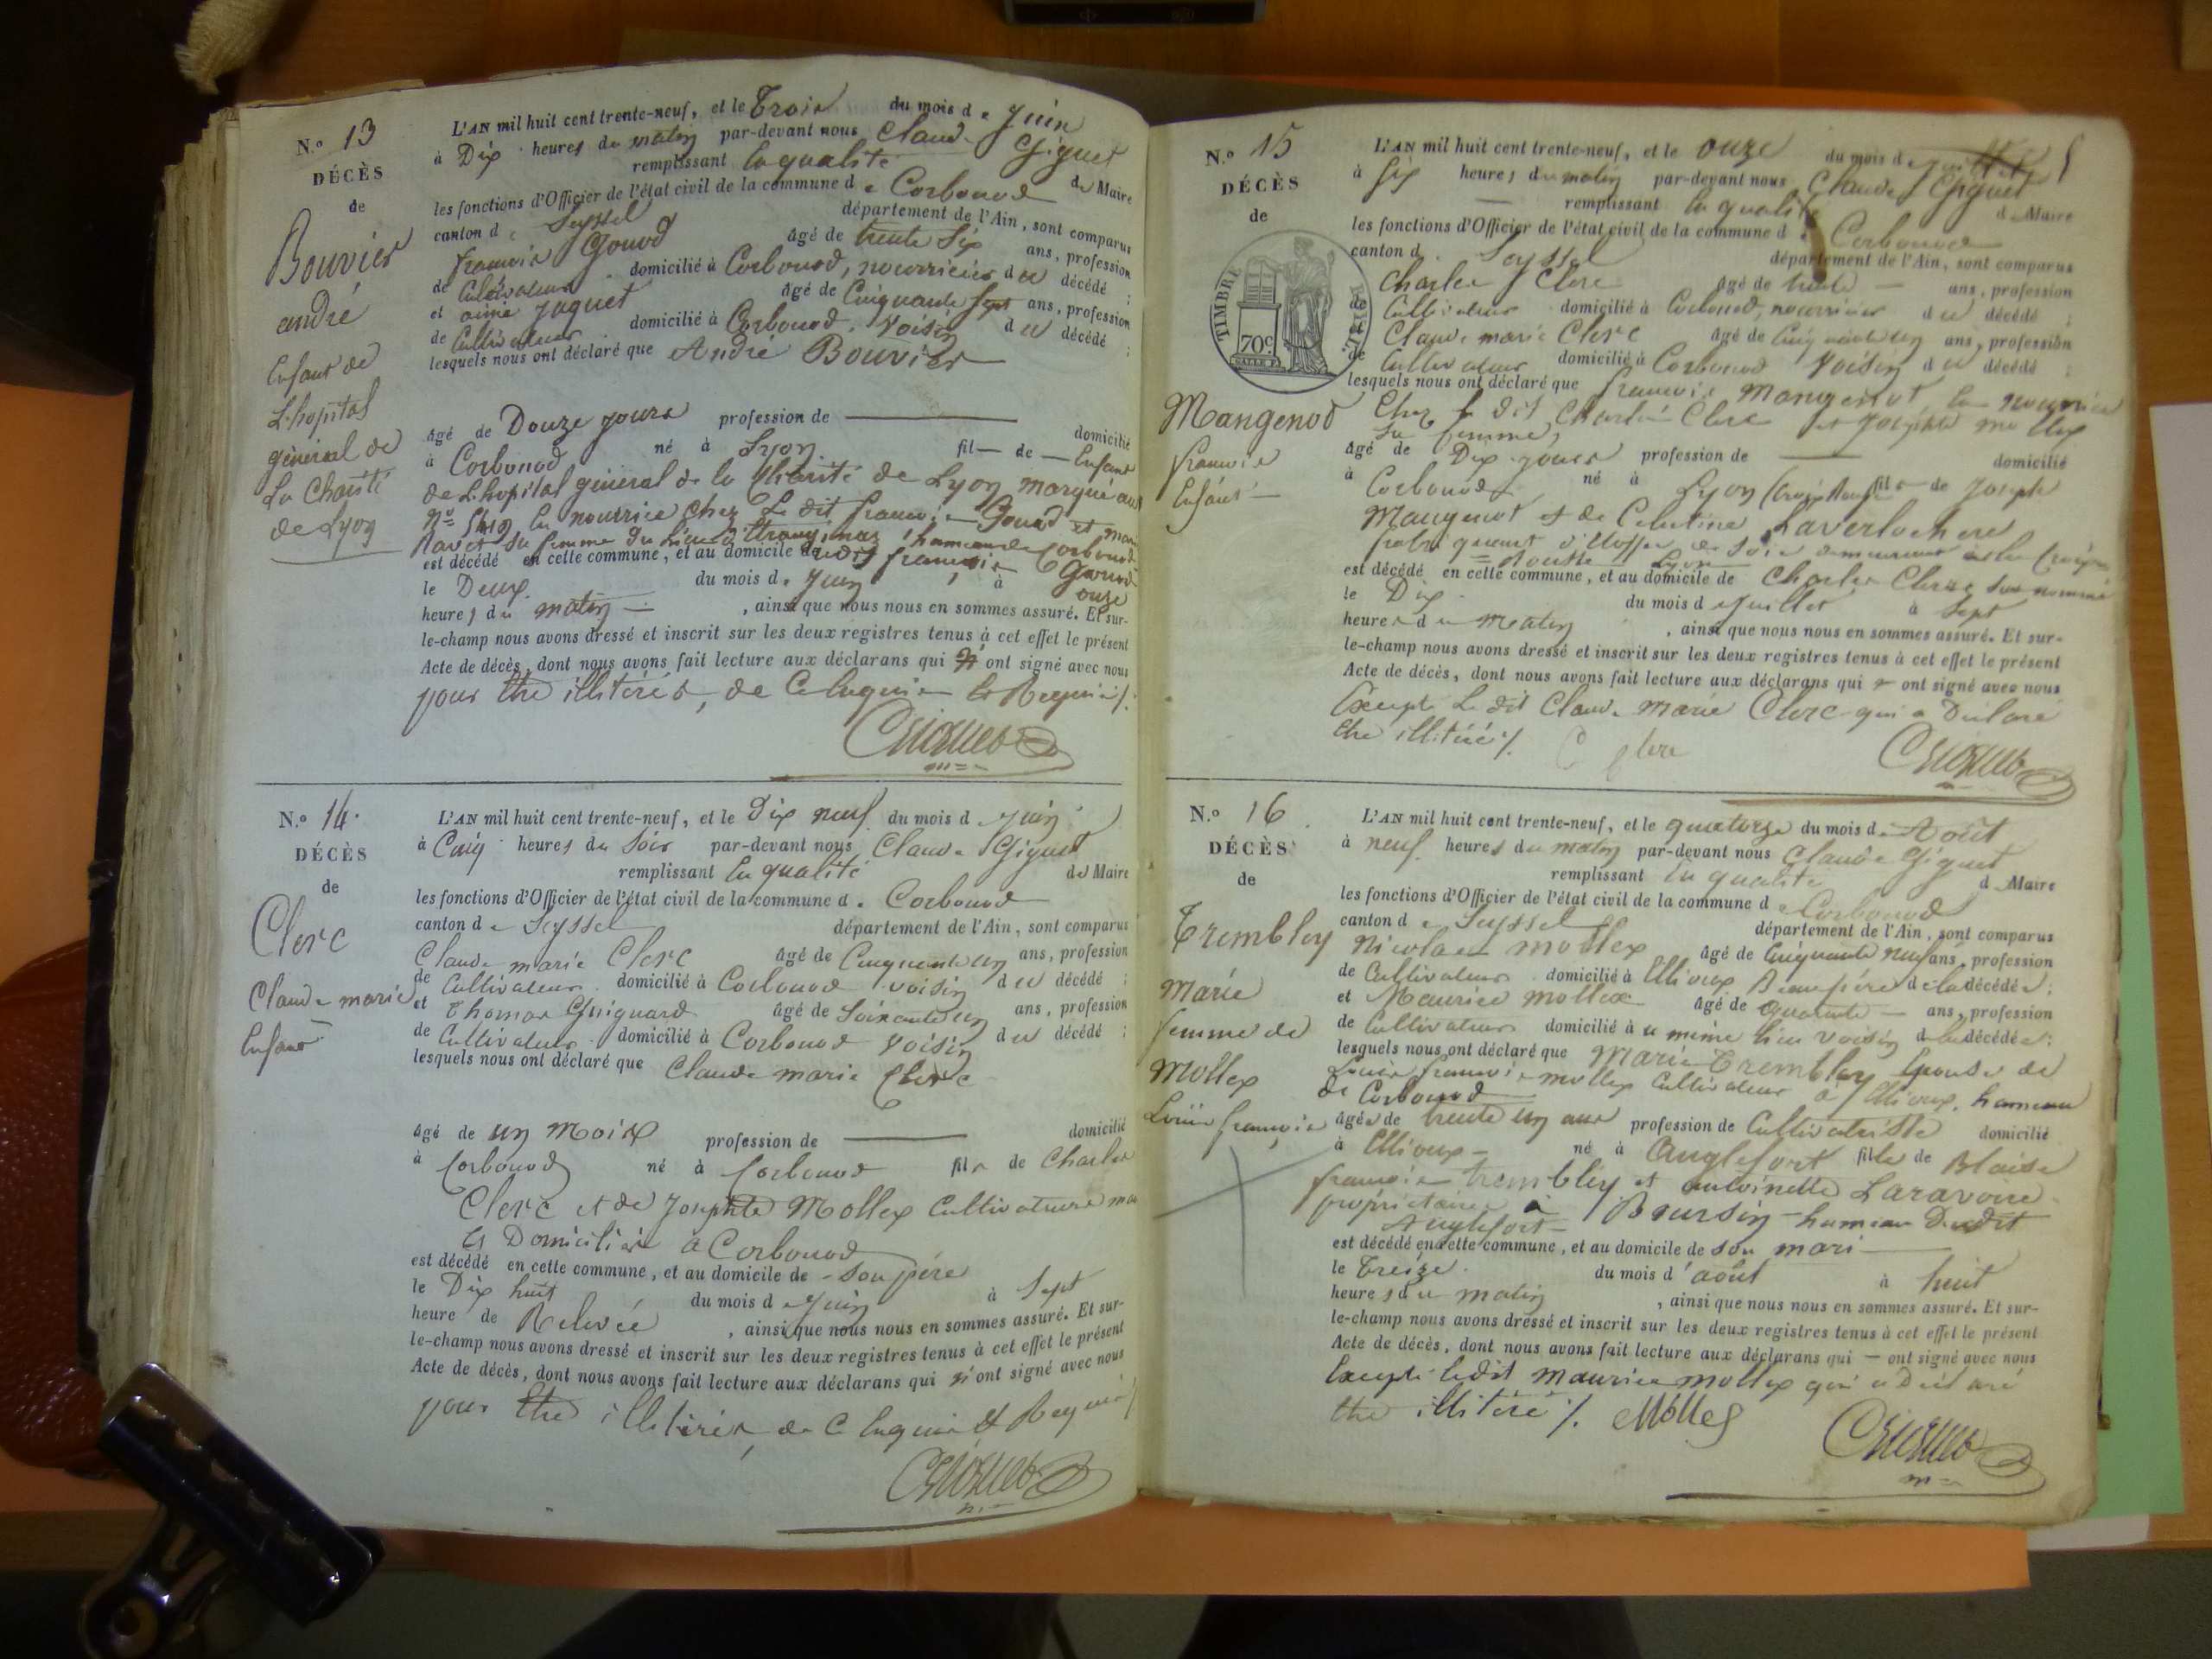 N.º 13
DÉCÈS
de
Bouvier
andré
Enfant de
L'hopital
général de
La Charité
de Lyon
L'AN mil huit cent trente-neuf, et le Trois du mois de Juin
à Dix heures du matin par-devant nous Claude Giguet
remplissant la qualité de Maire
les fonctions d'Officier de l'état civil de la commune de Corbonod
canton de Seyssel département de l'Ain, sont comparus
françois Gonod âgé de trente Six ans, profession
de Cultivateur domicilié à Corbonod, nourricier du décédé ;
et aimé Jaquet âgé de Cinquante Sept ans, profession
de Cultivateur domicilié à Corbonod, Voisin du décédé ;
lesquels nous ont déclaré que André Bouvier
âgé de Douze jours profession de domicilié
à Corbonod né à Lyon fil de Enfant
de L'hopital général de la Charité de Lyon marqué au
Nº en nourrice chez Le dit françois Gonod et
sa femme du lieu d' hameau de Corbonod
est décédé en cette commune, et au domicile dudit françois Gonod
le Deux du mois de Juin à onze
heures du matin , ainsi que nous nous en sommes assuré. Et sur-
le-champ nous avons dressé et inscrit sur les deux registres tenus à cet effet le présent
Acte de décès, dont nous avons fait lecture aux déclarans qui N' ont signé avec nous
pour être illitérés, de Ce Enquis et Requis ./.
Giguet
N.º 14
DÉCÈS
de
Clerc
Claude marie
Enfant
L'AN mil huit cent trente-neuf, et le Dix neuf du mois de Juin
à Cinq heures du Soir par-devant nous Claude Giguet
remplissant la qualité de Maire
les fonctions d'Officier de l'état civil de la commune de Corbonod
canton de Seyssel département de l'Ain, sont comparus
Claude marie Clerc âgé de Cinquante un ans, profession
de Cultivateur domicilié à Corbonod voisin du décédé ;
et Thomas Guignard âgé de Soixante un ans, profession
de Cultivateur domicilié à Corbonod Voisin du décédé ;
lesquels nous ont déclaré que Claude marie Clerc
âgé de un Mois profession de domicilié
à Corbonod né à Corbonod fils de Charles
Clerc et de Josephte Mollex Cultivateurs
Domiciliés à Corbonod
est décédé en cette commune, et au domicile de Son père
le Dix huit du mois de Juin à Sept
heure de Relevée , ainsi que nous nous en sommes assuré. Et sur-
le-champ nous avons dressé et inscrit sur les deux registres tenus à cet effet le présent
Acte de décès, dont nous avons fait lecture aux déclarans qui n'ont signé avec nous
pour être illitérés, de Ce Enquis et Requis
Giguet
N.º 15
DÉCÈS
de
TIMBRE
70c.
Mangenod
françois
Enfant
L'AN mil huit cent trente-neuf, et le onze du mois de Juillet
à Six heures du matin par-devant nous Claude Giguet
remplissant la qualité de Maire
les fonctions d'Officier de l'état civil de la commune de Corbonod
canton de Seyssel département de l'Ain, sont comparus
Charles Clerc âgé de trente ans, profession
de Cultivateur domicilié à Corbonod, nourricier du décédé ;
Claude marie Clerc âgé de Cinquante un ans, profession
de Cultivateur domicilié à Corbonod Voisin du décédé ;
lesquels nous ont déclaré que françois Mangenot en nourrice
Chez le dit Charles Clerc et Josephte mollex
Sa femme,
âgé de Dix jours profession de domicilié
à Corbonod né à Lyon (Croix Rousse) fils de Joseph
Mangenot et de Célestine Laverlochere
fabriquant d'étoffes de Soie demeurant à la Croix
Rousse Lyon
est décédé en cette commune, et au domicile de Charles Clerc susnommé
le Dix du mois de Juillet à Sept
heures du Matin , ainsi que nous nous en sommes assuré. Et sur-
le-champ nous avons dressé et inscrit sur les deux registres tenus à cet effet le présent
Acte de décès, dont nous avons fait lecture aux déclarans qui ont signé avec nous
Excepté Le dit Claude Marie Clerc qui a Déclaré
être illitéré ./. C Clerc
Giguet
N.º 16
DÉCÈS
de
Trembley
Marie
femme de
Mollex
Louis françois
L'AN mil huit cent trente-neuf, et le quatorze du mois d'Août
à neuf heures du matin par-devant nous Claude Giguet
remplissant la qualité de Maire
les fonctions d'Officier de l'état civil de la commune de Corbonod
canton de Seyssel département de l'Ain, sont comparus
Nicolas mollex âgé de Cinquante neuf ans, profession
de Cultivateur domicilié à Etlioux Beaupère de la décédée ;
et Maurice mollex âgé de quarante ans, profession
de Cultivateur domicilié à u même lieu voisin de la décédée ;
lesquels nous ont déclaré que Marie Trembley Epouse de
Louis françois mollex Cultivateur à Etlioux, hameau
de Corbonod
âgée de trente un ans profession de Cultivatrice domicilié
à Etlioux né à Anglefort fille de Blaise
françois trembley et antoinette Laravoire
propriétaires à Boursin hameau Dudit
Anglefort
est décédé en cette commune, et au domicile de son mari
le Treize du mois d'août à huit
heures du matin , ainsi que nous nous en sommes assuré. Et sur-
le-champ nous avons dressé et inscrit sur les deux registres tenus à cet effet le présent
Acte de décès, dont nous avons fait lecture aux déclarans qui — ont signé avec nous
Excepté ledit maurice mollex qui a Déclaré
être illitéré ./. Mollex
Giguet